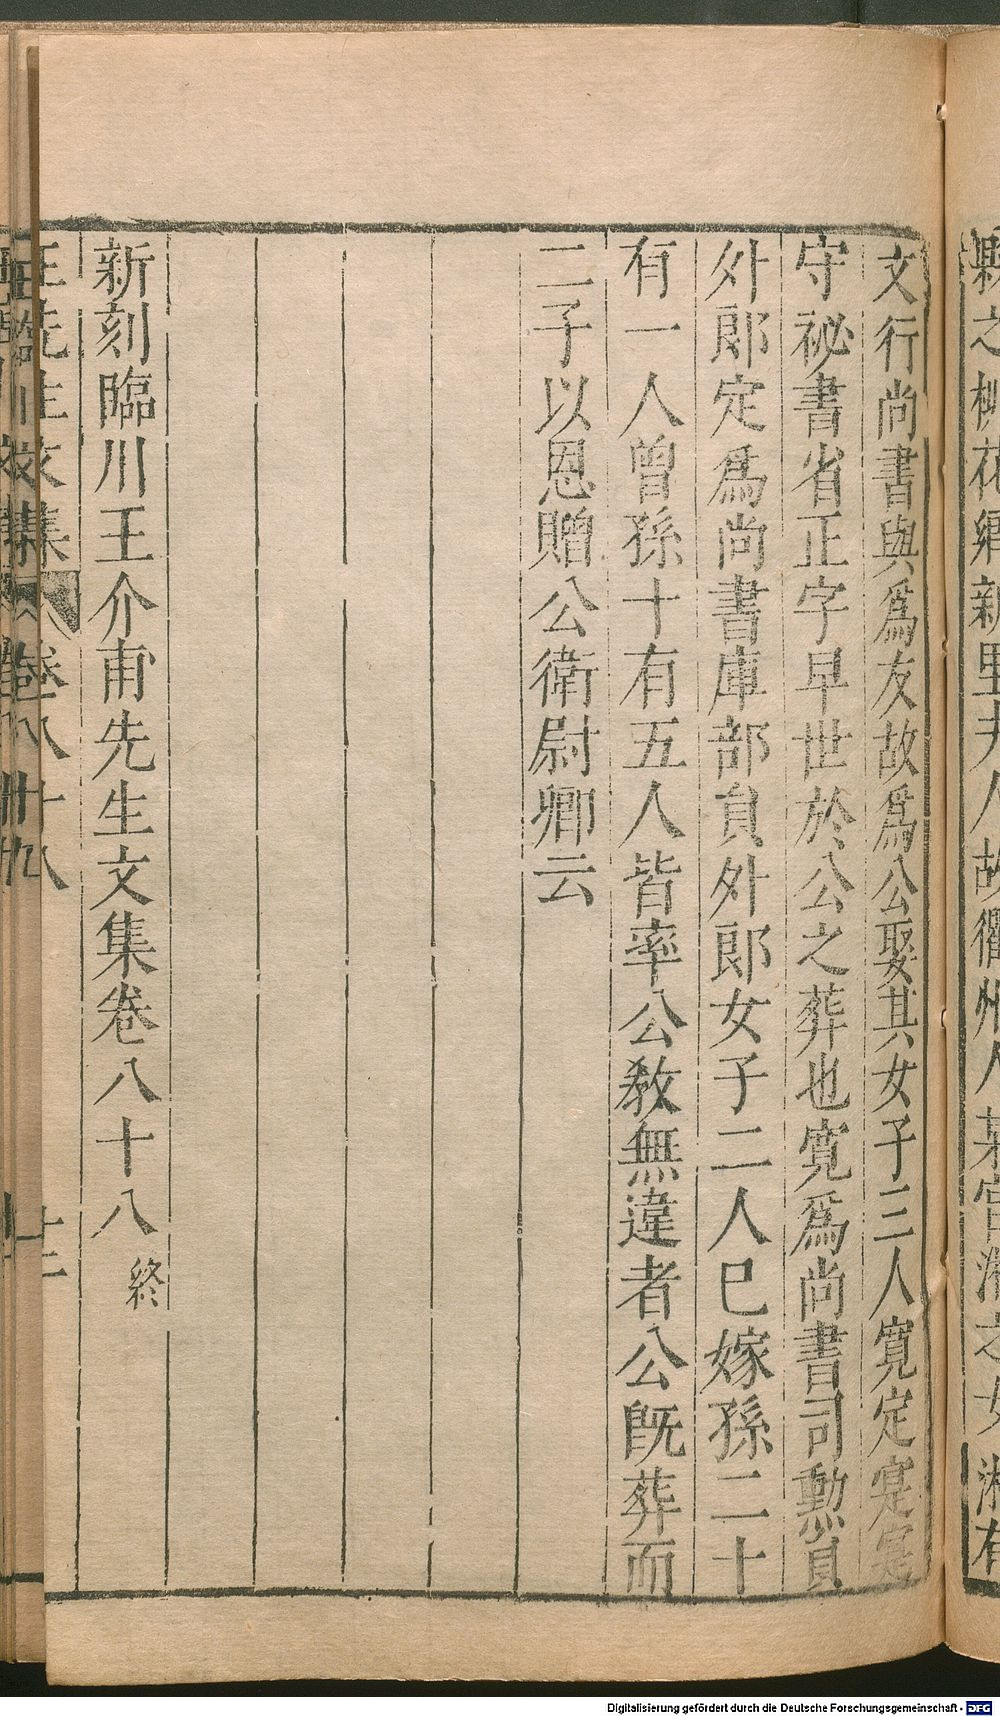 縣之桃花絹新里夫人故衢州人某官湘之女湘有
文行尚書與爲友故爲公娶其女子三人寬定寔寔
守祕書省正字早世於公之葬也寬爲尚書司勳員
外郎定爲尚書庫部員外郎女子二人已嫁孫二十
有一人曾孫十有五人皆率公敎無違者公旣葬而
二子以恩贈公衛尉卿云
新刻臨川王介甫先生文集卷八十八 終
王先生文集 卷八十八 十二
Digitalisierung gefördert durch die Deutsche Forschungsgemeinschaft - DFG